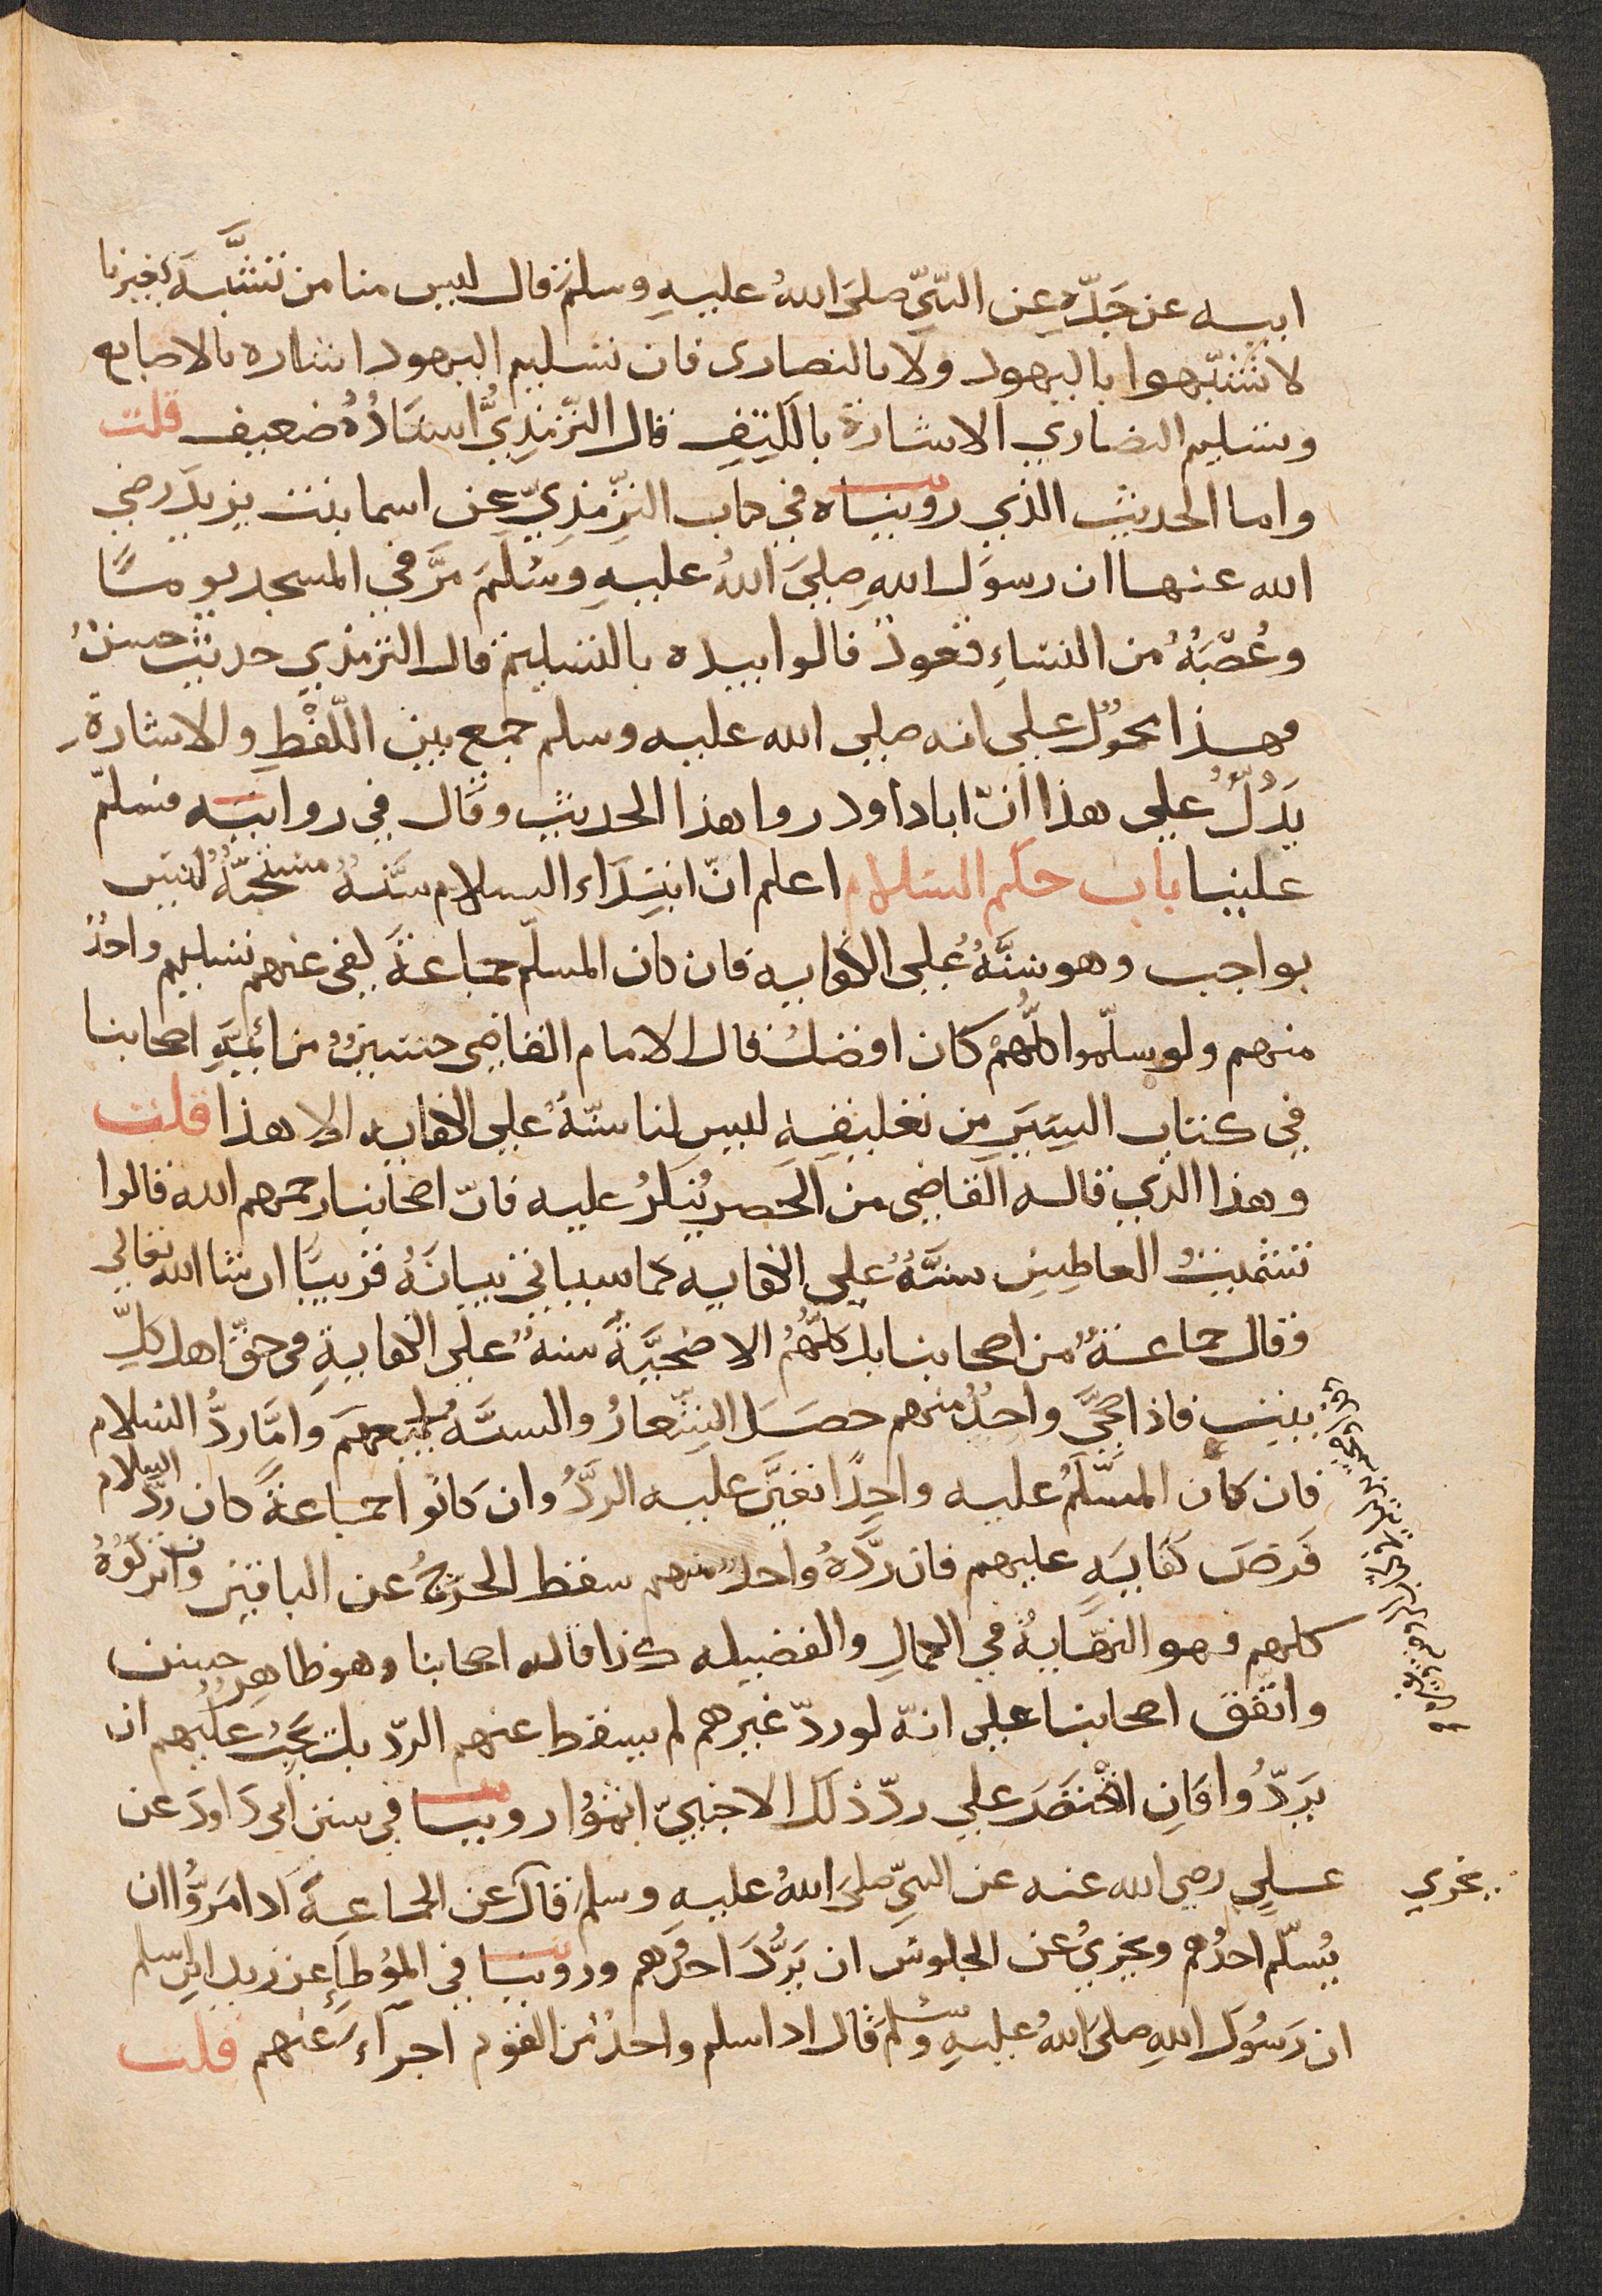 ابيه عن جَدّهِ عن النّبيّ صلى اللهُ عليهِ وسلم قال ليس منا من تشبَّهَ بغيرنا
لا تشبّهوا باليهود ولا بالنصارى فان تسليم اليهود اشاره بالاصابع
وتسليم النصاري الاشارة بالكفِ قال الترمذيُّ اسنَادُهُ ضعيف قلت
واما الحديث الذي رويناه في كتاب الترمذيّ عن اسما بنت يزيد رضي
الله عنها ان رسول اللهِ صليَ اللهُ عليهِ وسَلمَ مرَّ في المسجد يومًا
وعُصْبَةُ من النسَاءِ قعودٌ فالوا بيده بالتسليم قال الترمذي حديث حسنٌ
فهذا محمولٌ علي انه صلي الله عليه وسلم جمع بين اللّفْظِ والاشارةِ
يَدُلُّ علي هذا انّ ابا داود روا هذا الحديث وقال في روايته فسلمّ
علينا باب حكم السلام اعلم انّ ابتدَاء السلام سنَّةُ مستحبّةُ ليس
بواجب وهو سنَّةُ علي الكفايه فان كان المسلّم جماعةً كفي عنهم تسليم واحدٌ
منهم ولو سلّموا كلُّهمْ كان افضلُ قال الامام القاضي حسينُ من ائمةِ اصحابنا
في كتاب السِيَرِ من تعليقِهِ ليس لنا سنّةُ علي الكفايه الا هذا قلت
وهذا الذي قاله القاضي من الحصر يُنكرُ عليه فانّ اصحابنا رحمهم الله قالوا
تشميتُ العاطِسِ سنَّةُ علي الكفايه كما سياتي بيانَهُ قريبًا ان شا الله تعالي
وقال جماعةٌ من اصحابنا بل كلّهُمُ الاضحيَّةُ سنةٌ علي الكفايةِ في حقّ اهل كلِّ
بيت فاذا ضحَّي واحدٌ منهم حصَلَ الشِّعارُ والسنَّةُ لجميعهمَ وامَّا ردُّ السلام
فان كان المسَلّمُ عليه واحِدًا تعيَّن عليه الردُّ وان كانوا جماعةً كان ردُّ السلام
فَرضَ كفايَةٍ عليهم فان ردَّهُ واحدٌ منهم سقط الحرَجُ عن الباقين وان تركوُهُ
كلهم فهو النهايةُ في الكمالِ والفضيله كذا قاله اصحابنا وهو ظاهِرٌ حسن
واتفّق اصحابنا علي انهّ لو ردّ غيرهم لم يسقط عنهم الردّ بل يجبُ عليهم ان
يَردّوُا فانِ اقْتصَرَ علي ردّ ذلك الاجنبيّ اثموُا روينا في سنن ابي دَاودَ عن
علي رضي الله عنه عن النبيّ صليَ اللهُ عليهِ وسلم قال عن الجماعةَ اذا مَرُّوا ان
يُسلّم احدُهم ويجزيُ عن الجلوسَ ان يَردَّ احدُهم وروينا في الموُطأِ عن زيد ابن اسلم
ان رَسُولَ اللهِ صلى اللهُ عليهِ وسلمَ قال اذا سلم واحدٌ من القوم اجزأ عنهم قلت
يجزي